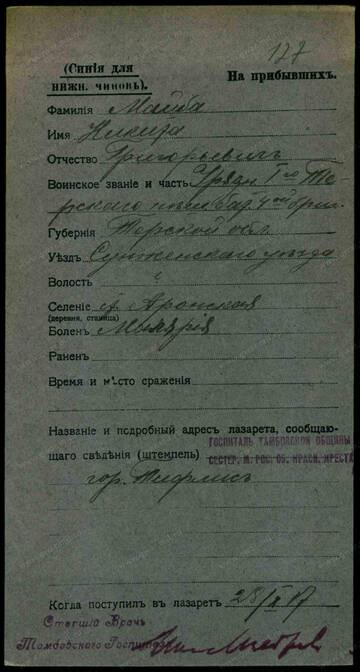 127
(Синія для нижн. чиновъ).
На прибывшихъ.
Фамилія Майба
Имя Никита
Отчество Григорьевичъ
Воинское званіе и часть Урядн. 1го Тер-
скаго пласт. бат. 4ой бриг.
Губернія Терской обл.
Уѣздъ Сунженскаго уѣзда
Волость "
Селеніе (деревня, станица)
Боленъ Малярія
Раненъ
Время и мѣсто сраженія
Названіе и подробный адресъ лазарета, сообщаю-
ГОСПИТАЛЬ ТАМБОВСКОЙ ОБЩИНЫ
щаго свѣдѣнія (штемпель)
СЕСТЕР. М. РОС. ОБ. КРАСН. КРЕСТА
гор. Тифлисъ
Когда поступилъ въ лазаретъ 28/X 17
Старшій Врачъ
Тамбовскаго Госпиталя